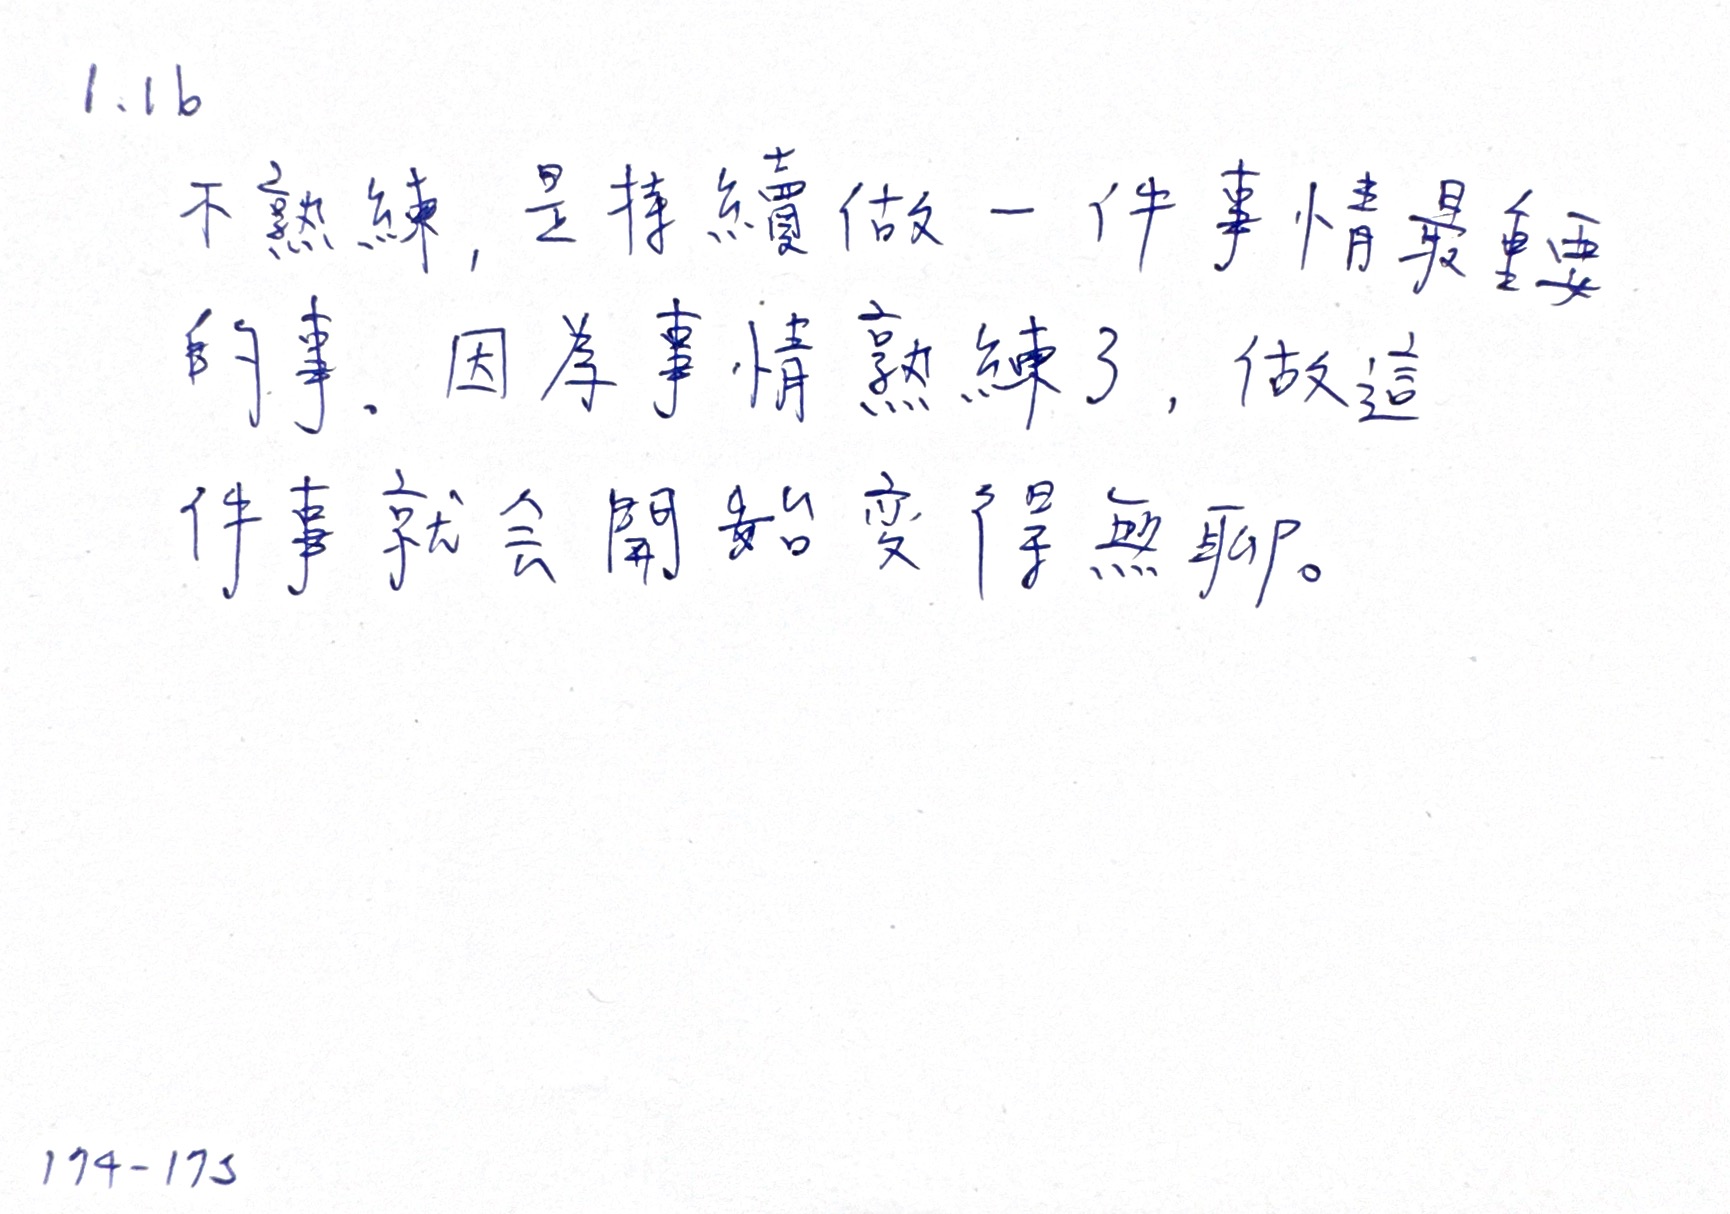 1.1b
不熟練，是持續做一件事情最重要
的事．因為事情熟練了，做這
件事就会開始変得無聊。
174-175